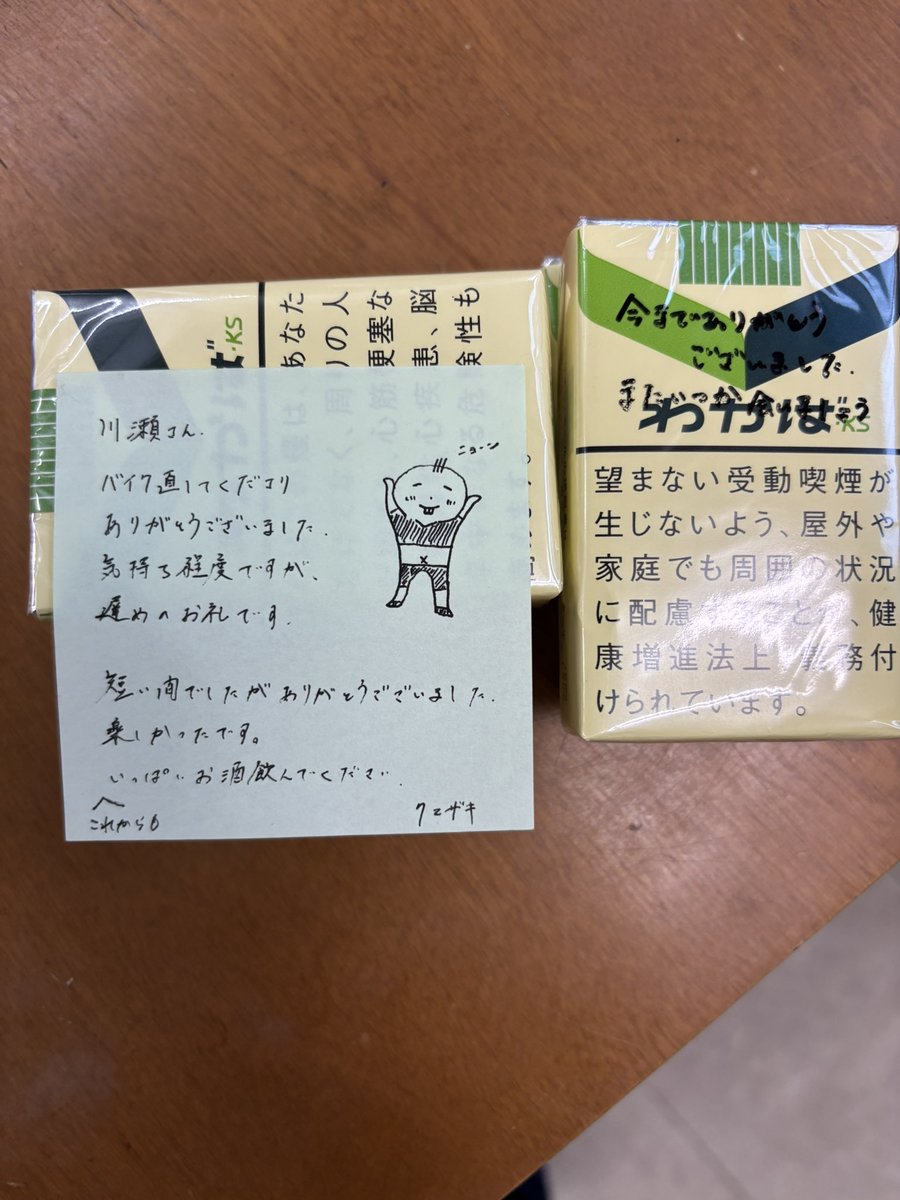 川瀬さん.
バイク直してくださり
ありがとうございました.
気持ち程度ですが、
遅めのお礼です.
ニョーン
短い間でしたがありがとうございました.
楽しかったです。
いっぱいお酒飲んでください
これからも
クマザキ
わかば・KS
あなた
りの人
梗塞な
患、脳
険性も
今までありがとう
ございました.
またいつか会いましょう
わかば・KS
望まない受動喫煙が
生じないよう、屋外や
家庭でも周囲の状況
に配慮することが、健
康増進法上、義務付
けられています。